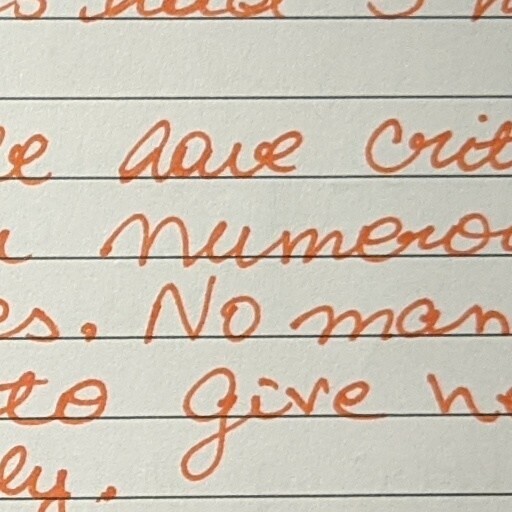 e have crit
numero
es. No man
to give
ey.